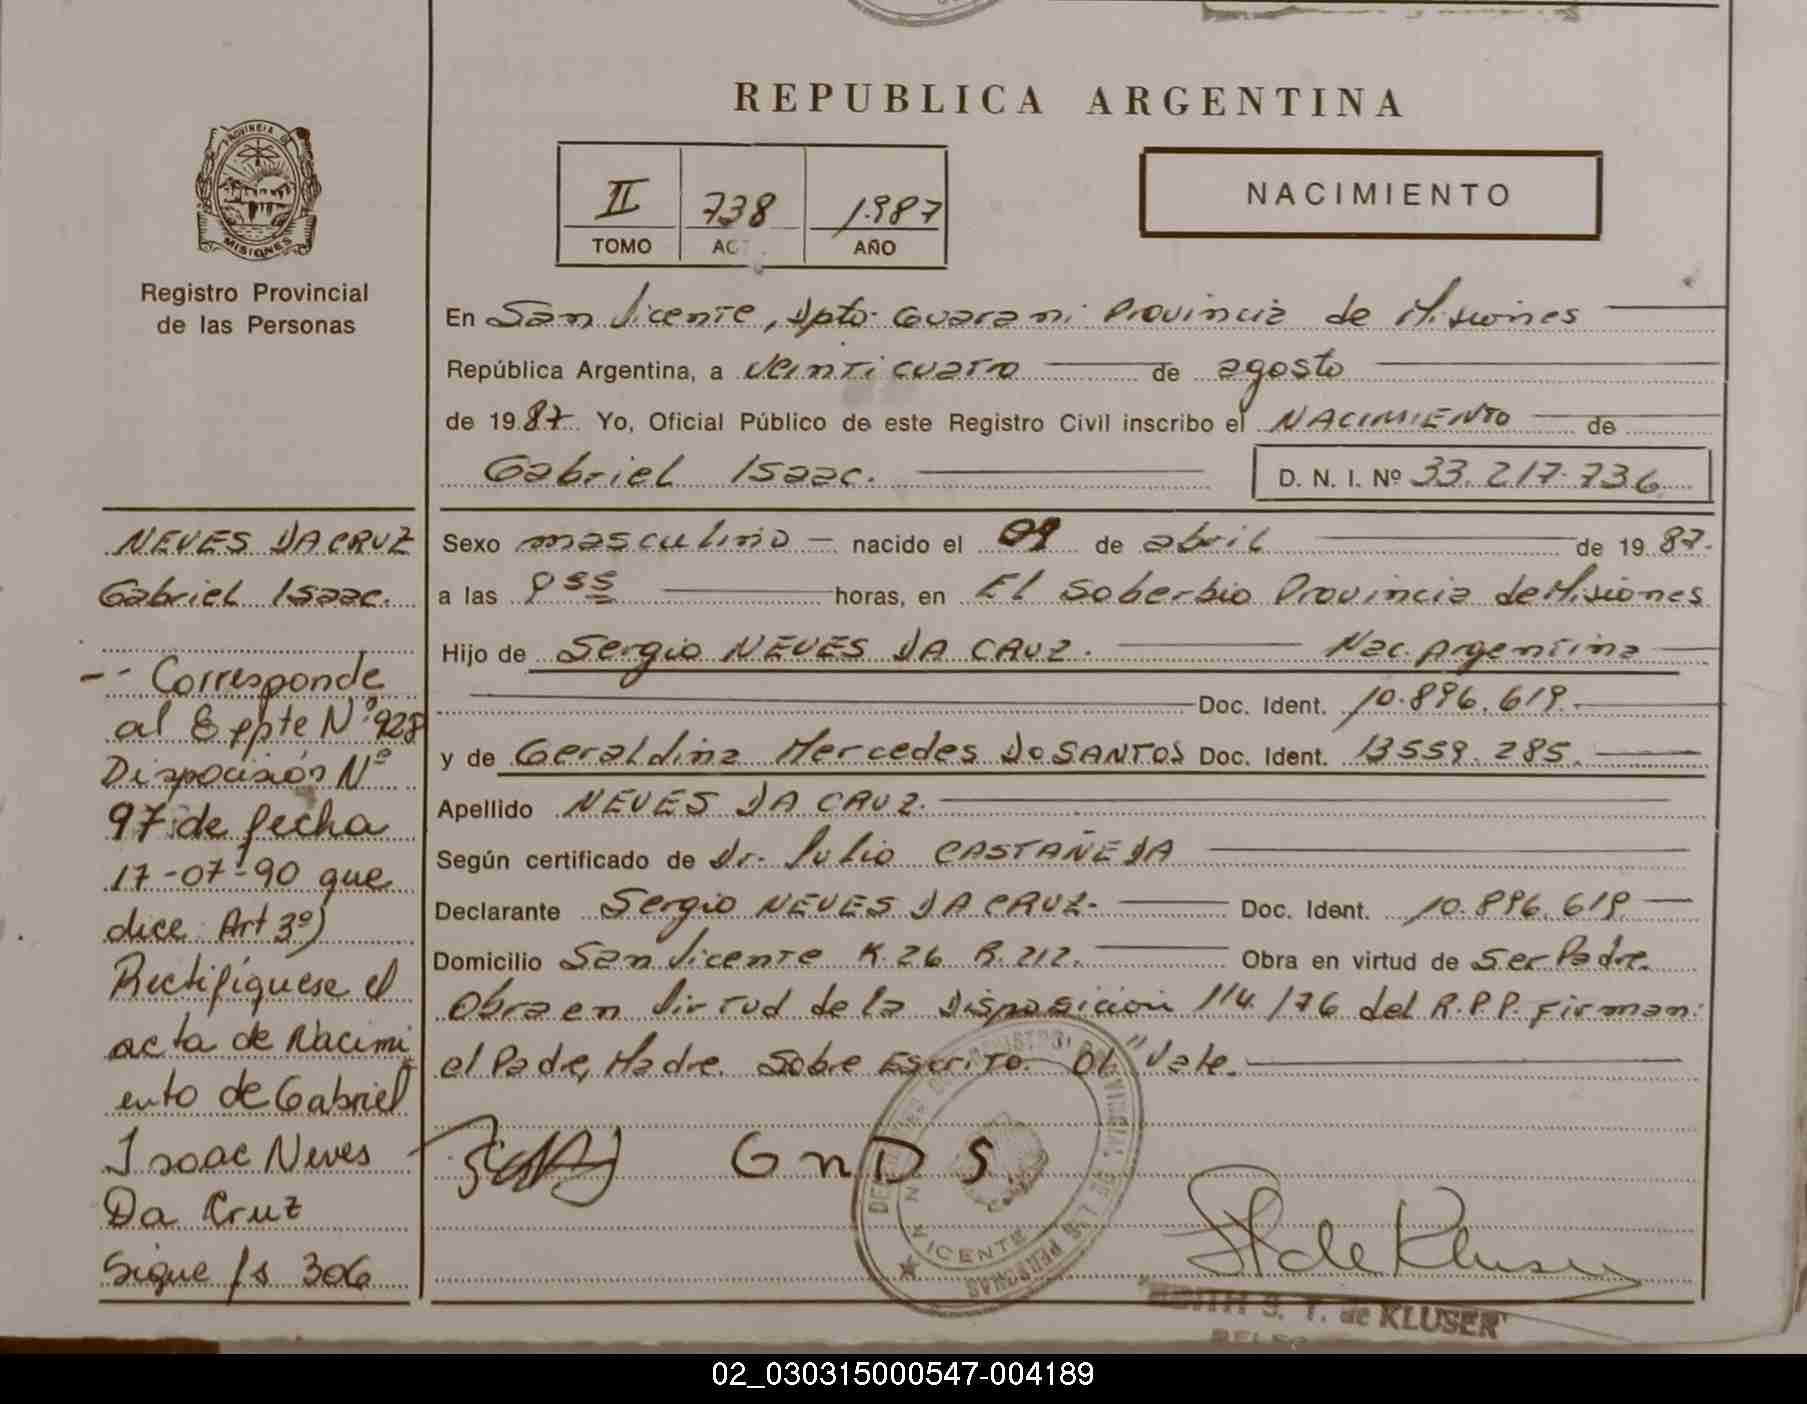 REPUBLICA ARGENTINA
II 738 1987
TOMO AC AÑO
NACIMIENTO
PROVINCIA DE
MISIONES
Registro Provincial
de las Personas
En San Vicente, Dpto. Guarani Provincia de Misiones
República Argentina, a veinticuatro de agosto
de 1987. Yo, Oficial Público de este Registro Civil inscribo el NACIMIENTO de
Gabriel Isaac. D. N. I. Nº 33.217.736
Sexo masculino nacido el 01 de abril de 1987.
a las 9 55 horas, en El Soberbio Provincia de Misiones
Hijo de Sergio NEVES DA CRUZ. Nac. Argentina
Doc. Ident. 10.896.619.
y de Geraldina Mercedes DoSANTOS Doc. Ident. 13559.285.
Apellido NEVES DA CRUZ.
Según certificado de Dr. Julio CASTAÑEDA
Declarante Sergio NEVES DA CRUZ. Doc. Ident. 10.896.619
Domicilio San Vicente K.26 R.212. Obra en virtud de Ser Padre.
Obra en Virtud de la Disposición 114/76 del R.P.P. Firman:
el Padre, Madre. Sobre Escrito. 01" Vale.
NEVES DA CRUZ
Gabriel Isaac.
-- Corresponde
al Eppte Nº 928
Disposición Nº
97 de fecha
17-07-90 que
dice Art 3º)
Rectifíquese el
acta de Nacimi
ento de Gabriel
Isaac Neves
Da Cruz
Sigue fs 306
GmDS
VICENTE
DE LAS PERSONAS
St de Kluser
S. T. de KLUSER
02_030315000547-004189